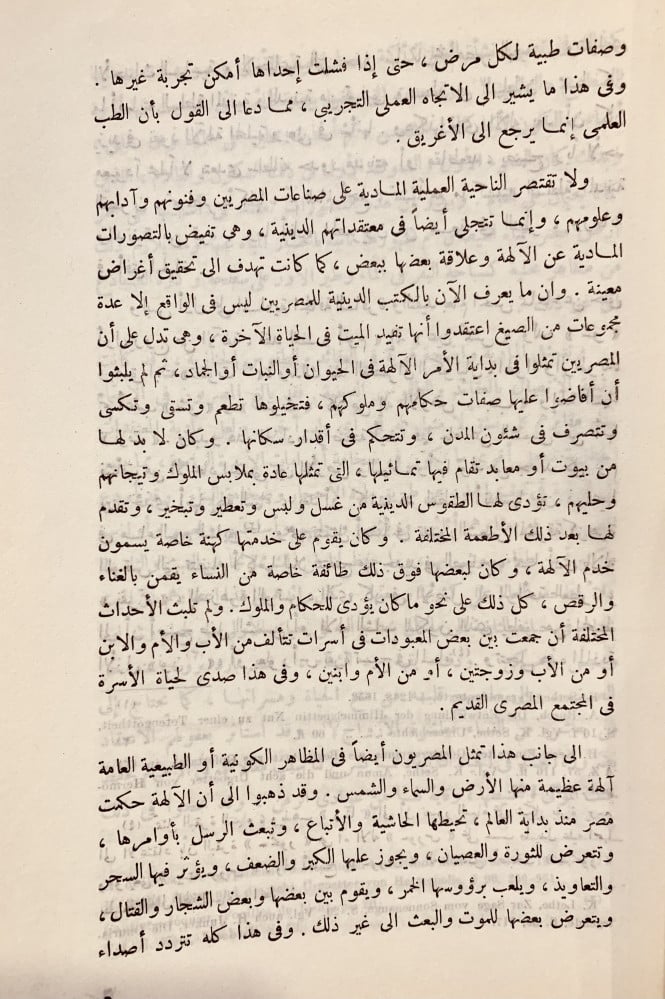 وصفات طبية لكل مرض ، حتى إذا فشلت إحداها أمكن تجربة غيرها .
وفى هذا ما يشير الى الاتجاه العملى التجريبى ، مما دعا الى القول بأن الطب
العلمى إنما يرجع الى الأغريق .
ولا تقتصر الناحية العملية المادية على صناعات المصريين وفنونهم وآدابهم
وعلومهم ، وإنما تتجلى أيضاً فى معتقداتهم الدينية ، وهى تفيض بالتصورات
المادية عن الآلهة وعلاقة بعضها ببعض ، كما كانت تهدف الى تحقيق أغراض
معينة . وان ما يعرف الآن بالكتب الدينية للمصريين ليس فى الواقع إلا عدة
مجموعات من الصيغ اعتقدوا أنها تفيد الميت فى الحياة الآخرة ، وهى تدل على أن
المصريين تمثلوا فى بداية الأمر الآلهة فى الحيوان أو النبات أو الجماد ، ثم لم يلبثوا
أن أفاضوا عليها صفات حكامهم وملوكهم ، فتخيلوها تطعم وتسقى وتكسى
وتتصرف فى شئون المدن ، وتتحكم فى أقدار سكانها . وكان لا بد لها
من بيوت أو معابد تقام فيها تماثيلها ، التى تمثلها عادة بملابس الملوك وتيجانهم
وحليهم ، تؤدى لها الطقوس الدينية من غسل ولبس وتعطير وتبخير ، وتقدم
لها بعد ذلك الأطعمة المختلفة . وكان يقوم على خدمتها كهنة خاصة يسمون
خدم الآلهة ، وكان لبعضها فوق ذلك طائفة خاصة من النساء يقمن بالغناء
والرقص ، كل ذلك على نحو ما كان يؤدى للحكام والملوك . ولم تلبث الأحداث
المختلفة أن جمعت بين بعض المعبودات فى أسرات تتألف من الأب والأم والابن
أو من الأب وزوجتين ، أو من الأم وابنين ، وفى هذا صدى لحياة الأسرة
فى المجتمع المصرى القديم .
الى جانب هذا تمثل المصريون أيضاً فى المظاهر الكونية أو الطبيعية العامة
آلهة عظيمة منها الأرض والسماء والشمس . وقد ذهبوا الى أن الآلهة حكمت
مصر منذ بداية العالم ، تحيطها الحاشية والأتباع ، وتبعث الرسل بأوامرها ،
وتتعرض للثورة والعصيان ، ويجوز عليها الكبر والضعف ، ويؤثر فيها السحر
والتعاويذ ، ويلعب برؤوسها الخمر ، ويقوم بين بعضها وبعض الشجار والقتال ،
ويتعرض بعضها للموت والبعث الى غير ذلك . وفى هذا كله تتردد أصداء